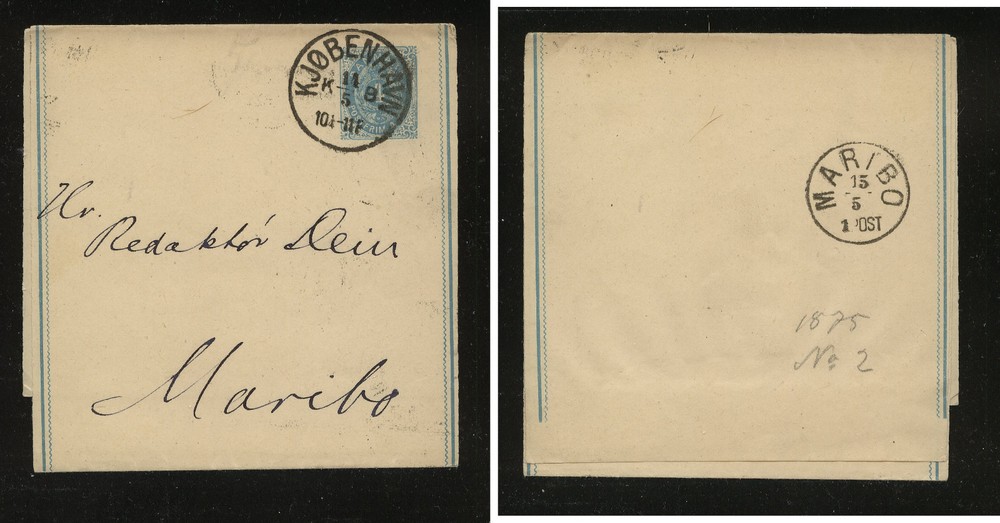 KJØBENHAVN
11
K B.
5
Hr.
Redaktör Dein
Maribo
MARIBO
15
5
1 POST
1875
No 2